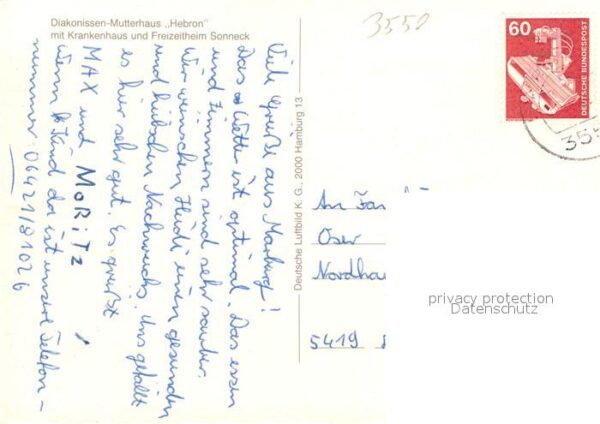 Diakonissen-Mutterhaus „Hebron"
mit Krankenhaus und Freizeitheim Sonneck
3550
60
DEUTSCHE BUNDESPOST
355
Viele Grüße aus Marburg!
Das Wetter ist optimal. Das essen
und Zimmern sind sehr sauber.
Wir wünschen Heidi einen gesunden
und hübschen Nachwuchs. Uns gefällt
es hier sehr gut. Es grüßt
MAX und MoRiTz
Wenn Kind da ist unsere Telefon-
nummer: 06421/81026
Deutsche Luftbild K. G., 2000 Hamburg 13
An Fam
Oser
Nordha
5419
privacy protection
Datenschutz